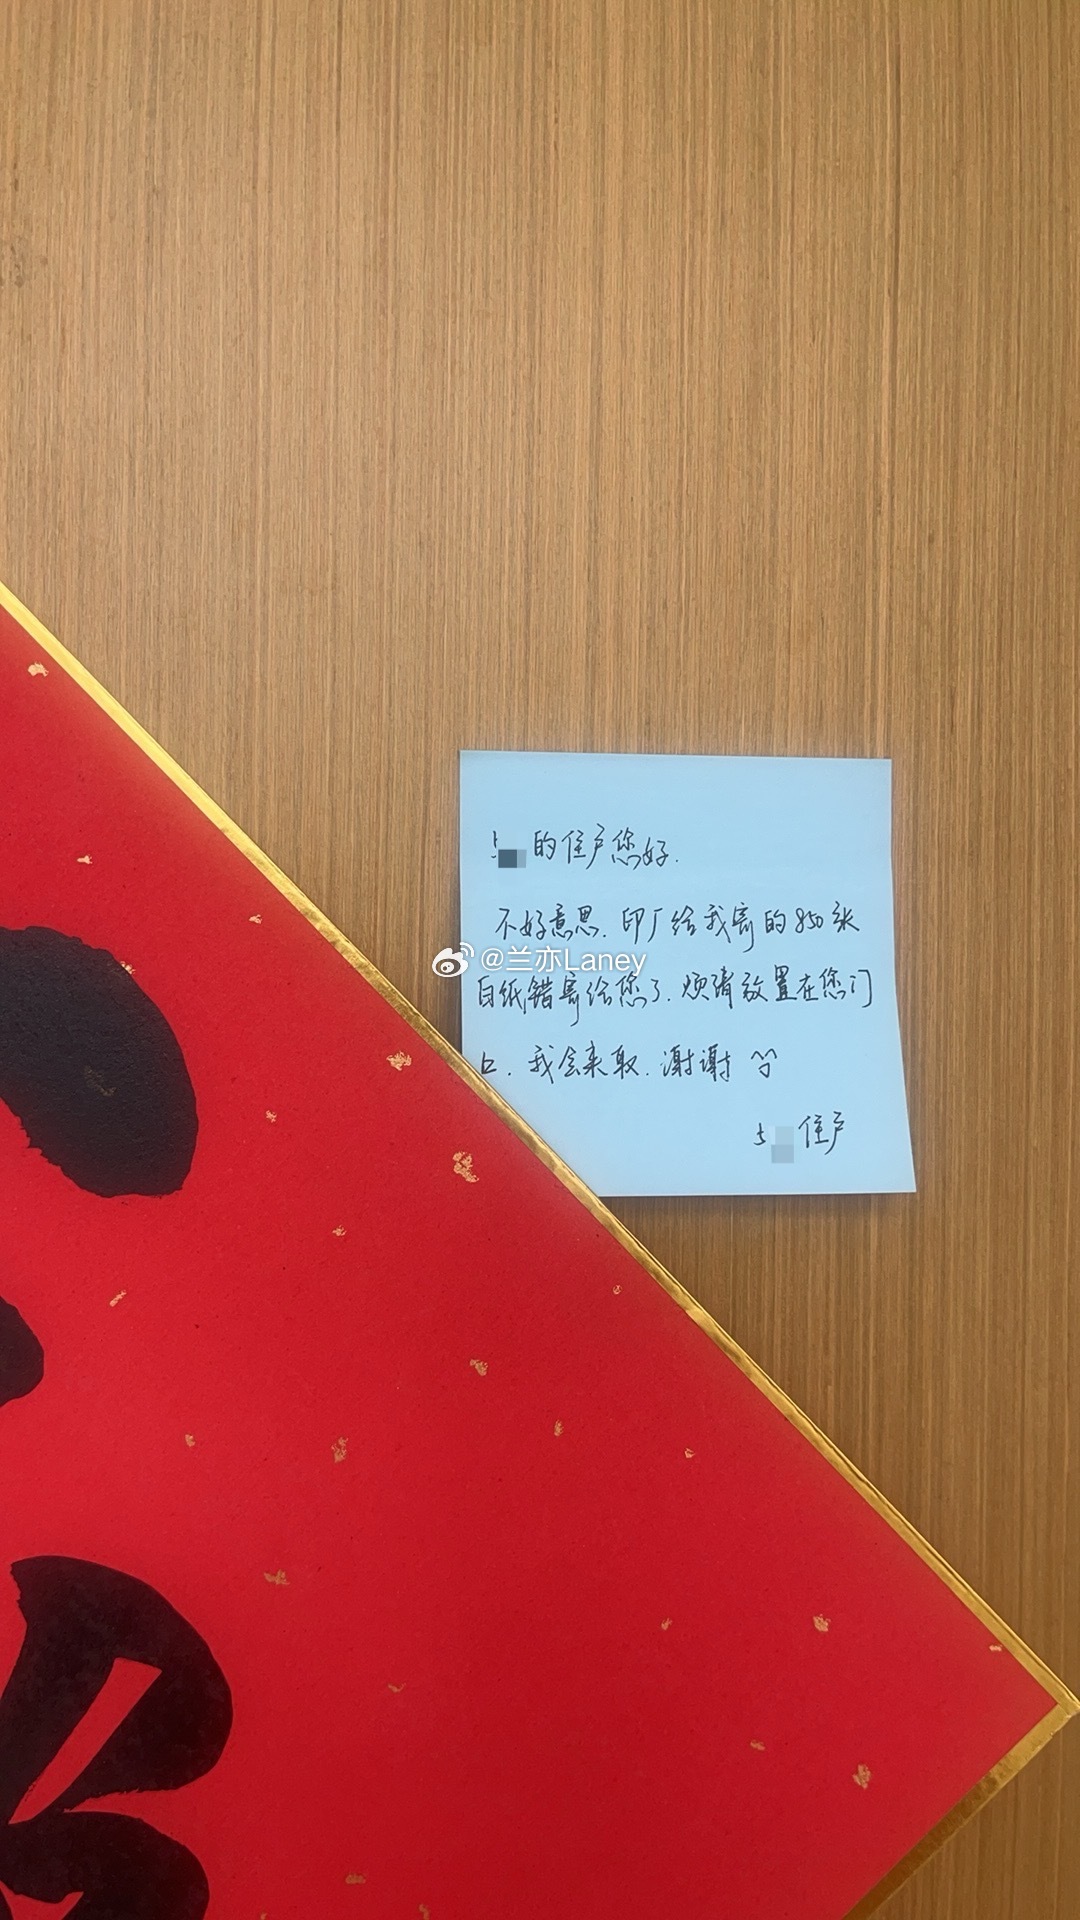 5 的住户您好.
不好意思. 印厂给我寄的850张
白纸错寄给您了. 烦请放置在您门
口. 我会来取. 谢谢
5 住户
@兰亦Laney